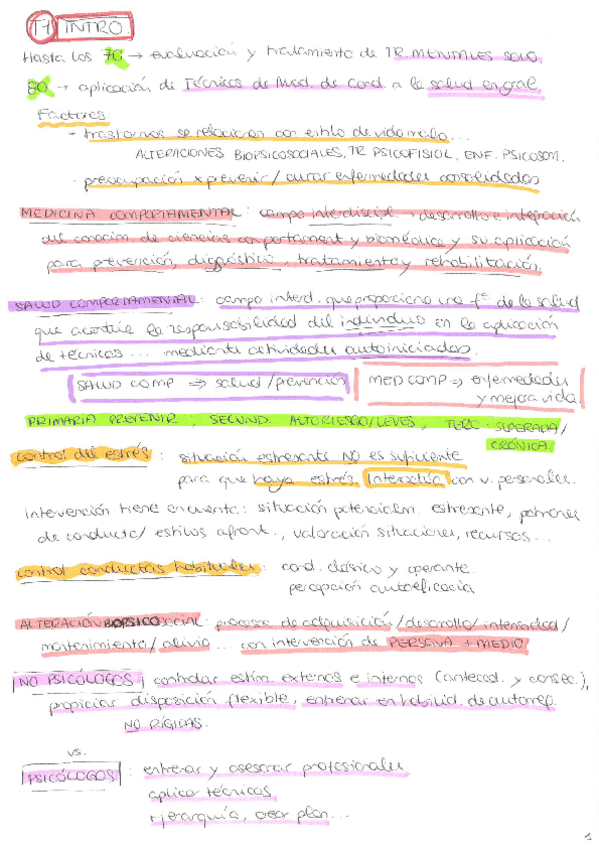 T1 INTRO
Hasta los 70 → evaluación y tratamiento de TR MENTALES SOLO.
80 → aplicación de Técnicas de Mod. de Cond. a la salud en gral.
Factores:
- trastornos se relacionan con estilo de vida malo...
ALTERACIONES BIOPSICOSOCIALES, TR PSICOFISIOL, ENF. PSICOSOM.
- preocupación x prevenir/curar enfermedades consolidadas
MEDICINA COMPORTAMENTAL: campo interdiscipl → desarrollo e integración
del conocim. de ciencias comportament y biomédica y su aplicación
para prevención, diagnóstico, tratamiento y rehabilitación.
SALUD COMPORTAMENTAL: campo interd. que proporciona una fª de la salud
que acentúe la responsabilidad del individuo en la aplicación
de técnicas ... mediante actividades autoiniciadas.
SALUD COMP ⇒ salud/prevención
MED COMP ⇒ enfermedades
y mejora vida.
PRIMARIA PREVENIR; SECUND. ALTO RIESGO/LEVES, TERC: SUPERADA/
CRÓNICA.
control del estrés: situación estresante NO es suficiente
para que haya estrés. Interactúa con v. personales.
Intervención tiene en cuenta: situación potencialm. estresante, patrones
de conducta/estilos afront., valoración situaciones, recursos...
control conductas habituales: cond. clásico y operante.
percepción autoeficacia
ALTERACIÓN BIOPSICOSOCIAL: proceso de adquisición/desarrollo/intensidad/
mantenimiento/alivio... con intervención de PERSONA + MEDIO
NO PSICÓLOGOS, controlar estím. externos e internos (anteced. y consec.),
propiciar disposición flexible, entrenar en habilid. de autorref.
NO RÍGIDAS.
vs.
PSICÓLOGOS: entrenar y asesorar profesionales
aplicar técnicas
+ jerarquía, crear plan...
1